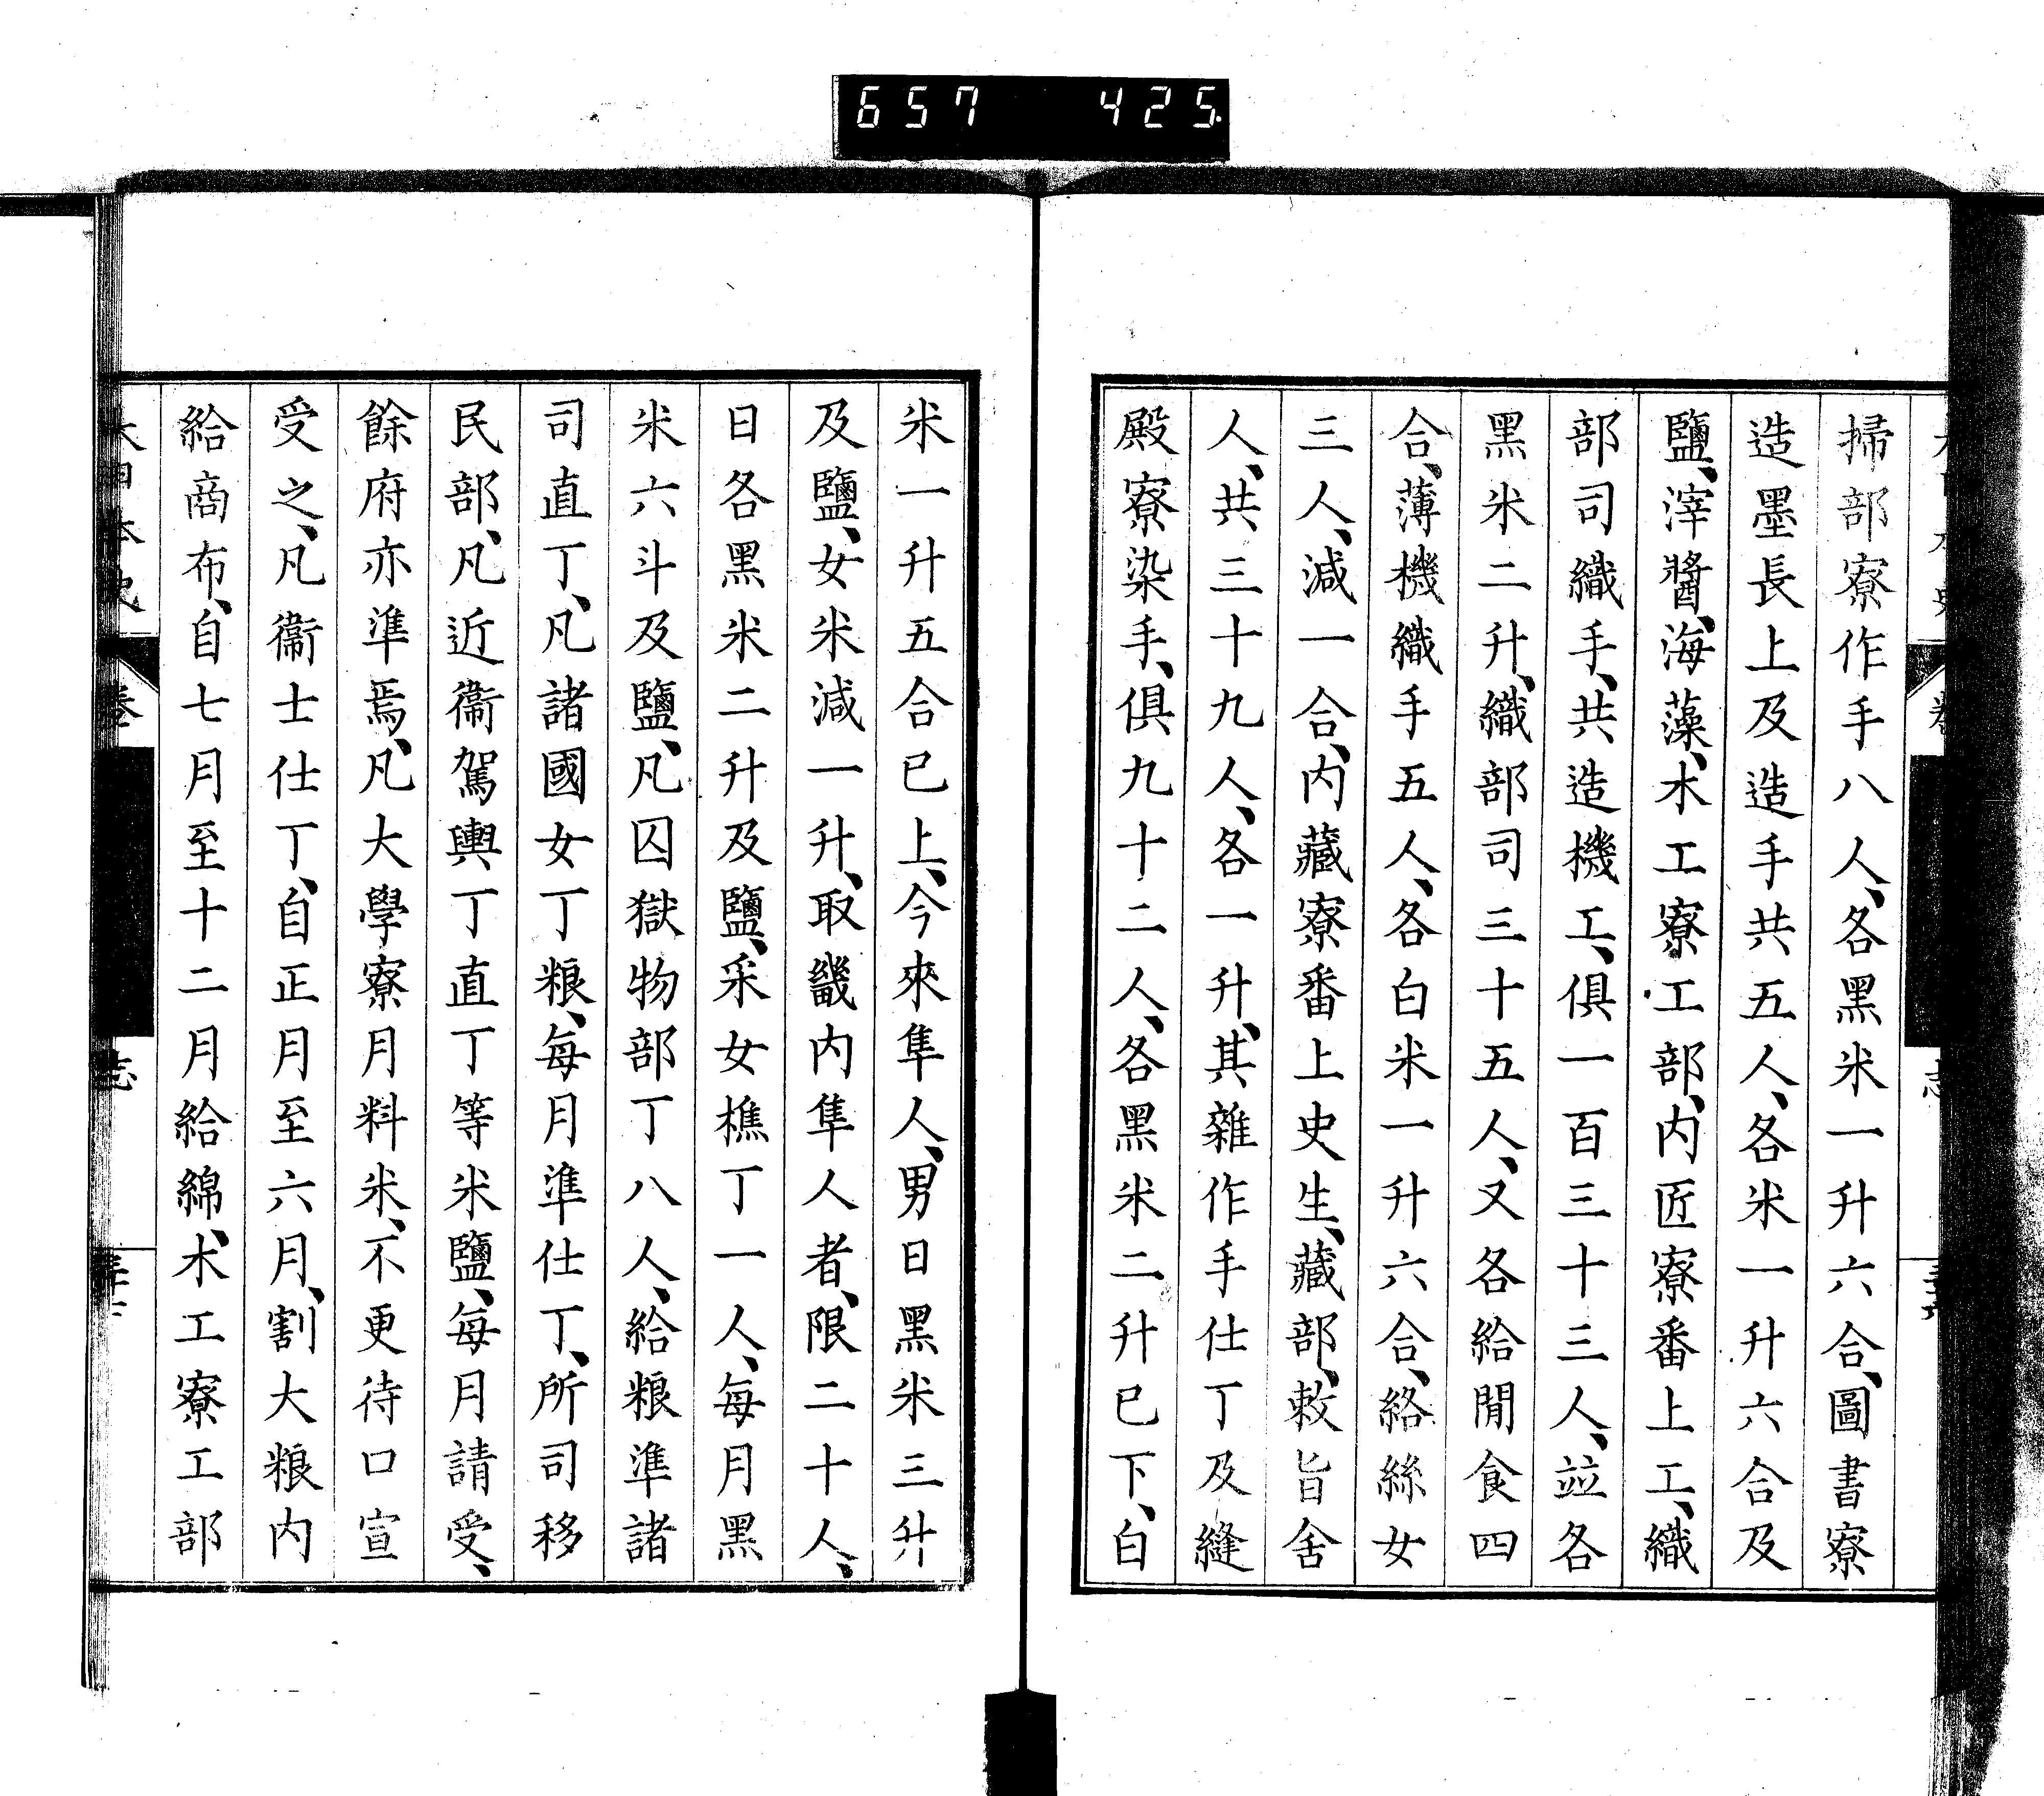 657 425
掃部寮作手八人、各黑米一升六合、圖書寮
造墨長上及造手共五人、各米一升六合及
鹽、滓醬、海藻、木工寮工部、内匠寮番上工、織
部司織手、共造機工、俱一百三十三人、竝各
黑米二升、織部司三十五人、又各給閒食四
合、薄機織手五人、各白米一升六合、絡絲女
三人、減一合、内藏寮番上史生、藏部、敕旨舍
人、共三十九人、各一升、其雜作手仕丁及縫
殿寮染手、俱九十二人、各黑米二升已下、白
米一升五合已上、今來隼人、男日黑米三升
及鹽、女米減一升、取畿内隼人者、限二十人、
日各黑米二升及鹽、采女樵丁一人、每月黑
米六斗及鹽、凡囚獄物部丁八人、給粮準諸
司直丁、凡諸國女丁粮、每月準仕丁、所司移
民部、凡近衞駕輿丁直丁等米鹽、每月請受、
餘府亦準焉、凡大學寮月料米、不更待口宣
受之、凡衞士仕丁、自正月至六月、割大粮内
給商布、自七月至十二月給綿、木工寮工部